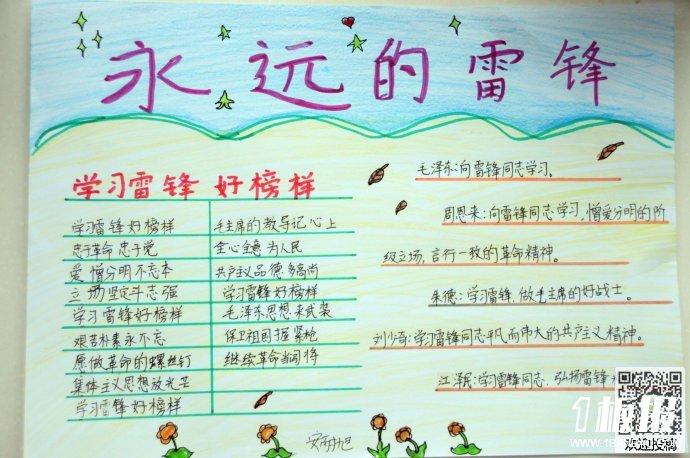 永远的雷锋
学习雷锋 好榜样
学习雷锋好榜样
忠于革命 忠于党
爱憎分明不忘本
立场坚定斗志强
学习雷锋好榜样
艰苦朴素永不忘
愿做革命的螺丝钉
集体主义思想放光芒
学习雷锋好榜样
毛主席的教导记心上
全心全意为人民
共产主义品德多高尚
学习雷锋好榜样
毛泽东思想来武装
保卫祖国握紧枪
继续革命当闯将
毛泽东:向雷锋同志学习。
周恩来:向雷锋同志学习,憎爱分明的阶
级立场,言行一致的革命精神。
朱德:学习雷锋,做毛主席的好战士。
刘少奇:学习雷锋同志平凡而伟大的共产主义精神。
江泽民:学习雷锋同志,弘扬雷锋
欢迎投稿